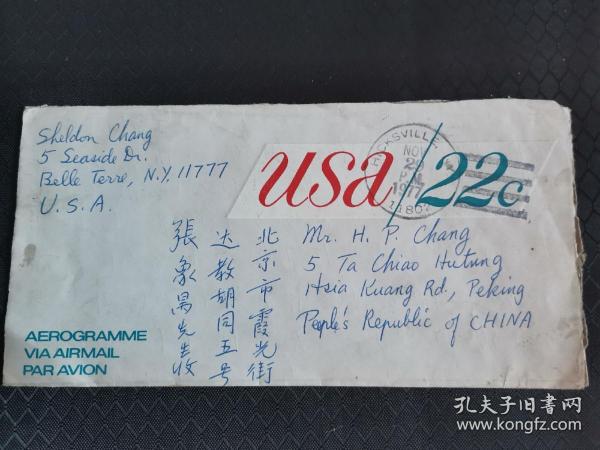 Sheldon Chang
5 Seaside Dr.
Belle Terre, N.Y. 11777
U.S.A.
usa 22c
HICKSVILLE
NOV
PM
1977
Mr. H. P. Chang
5 Ta Chiao Hutung
Hsia Kuang Rd., Peking
People's Republic of CHINA
北京市霞光街
达教胡同五号
張象昺先生收
AEROGRAMME
VIA AIRMAIL
PAR AVION
孔夫子旧书网
www.kongfz.com